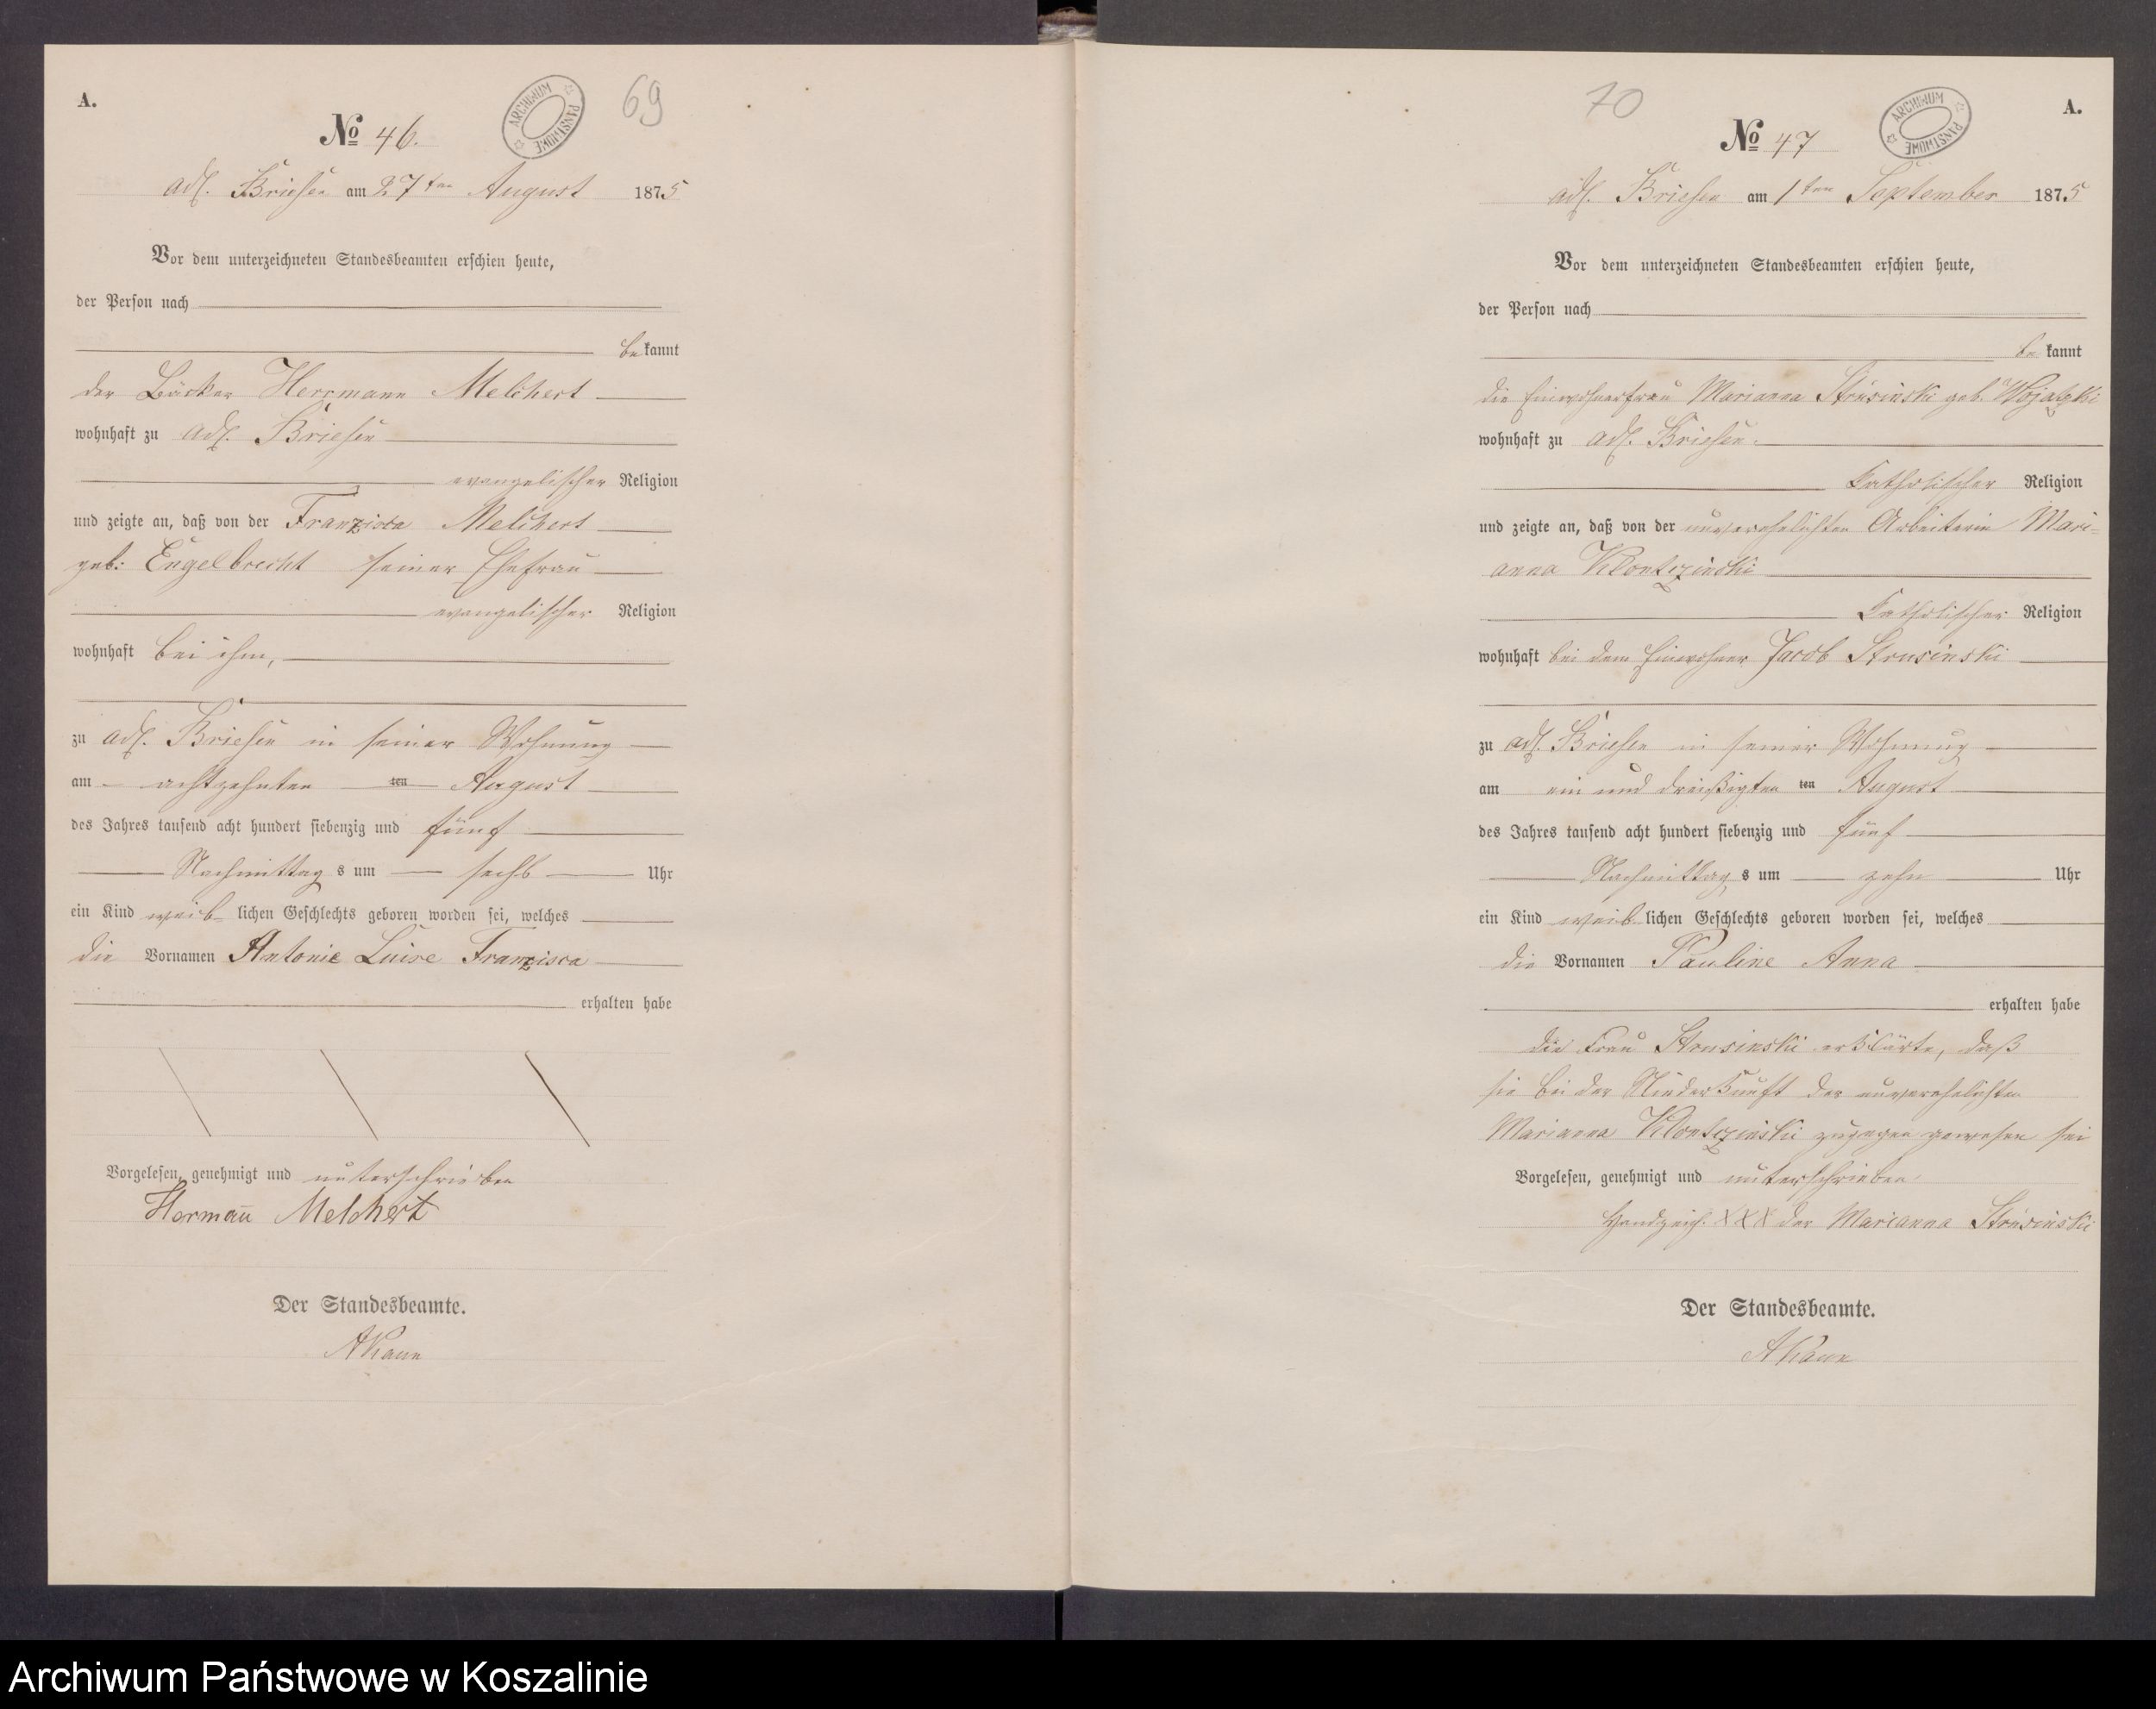 A.
69
ARCHIWUM PAŃSTWOWE
№ 46.
adl. Briesen am 27ten August 1875
Vor dem unterzeichneten Standesbeamten erschien heute,
der Person nach
bekannt
der Bäcker Herrmann Melchert
wohnhaft zu adl. Briesen
evangelischer Religion
und zeigte an, daß von der Franzisca Melchert
geb: Engelbrecht seiner Ehefrau
evangelischer Religion
wohnhaft bei ihm,
zu adl. Briesen in seiner Wohnung
am achtzehnten ten August
des Jahres tausend acht hundert siebenzig und fünf
Nachmittags um sechs Uhr
ein Kind weiblichen Geschlechts geboren worden sei, welches
die Vornamen Antonie Luise Franzisca
erhalten habe
Vorgelesen, genehmigt und unterschrieben
Hermañ Melchert
Der Standesbeamte.
70
ARCHIWUM PAŃSTWOWE
A.
№ 47
adl. Briesen am 1ten September 1875
Vor dem unterzeichneten Standesbeamten erschien heute,
der Person nach
bekannt
die Einwohnerfrau Marianna Strusinski geb. Wojatzki
wohnhaft zu adl. Briesen.
katholischer Religion
und zeigte an, daß von der unverehelichten Arbeiterin Mari-
anna Klontczinski
katholischer Religion
wohnhaft bei dem Einwohner Jacob Strusinski
zu adl. Briesen in seiner Wohnung
am ein und dreißigten ten August
des Jahres tausend acht hundert siebenzig und fünf
Nachmittags um zehn Uhr
ein Kind weiblichen Geschlechts geboren worden sei, welches
die Vornamen Pauline Anna
erhalten habe
die Frau Strusinski erklärte, daß
sie bei der Niederkunft der unverehelichten
Marianna Klontczinski zugegen gewesen sei
Vorgelesen, genehmigt und unterschrieben
Handzeich. XXX der Marianna Strusinski
Der Standesbeamte.
Archiwum Państwowe w Koszalinie